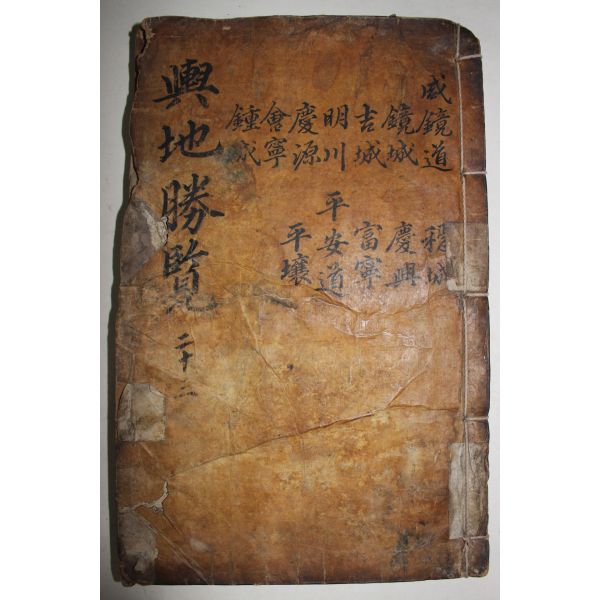 輿地勝覧 二十二
咸鏡道
鏡城
吉城
明川
慶源
會寧
鍾城
穩城
慶興
富寧
平安道
平壤